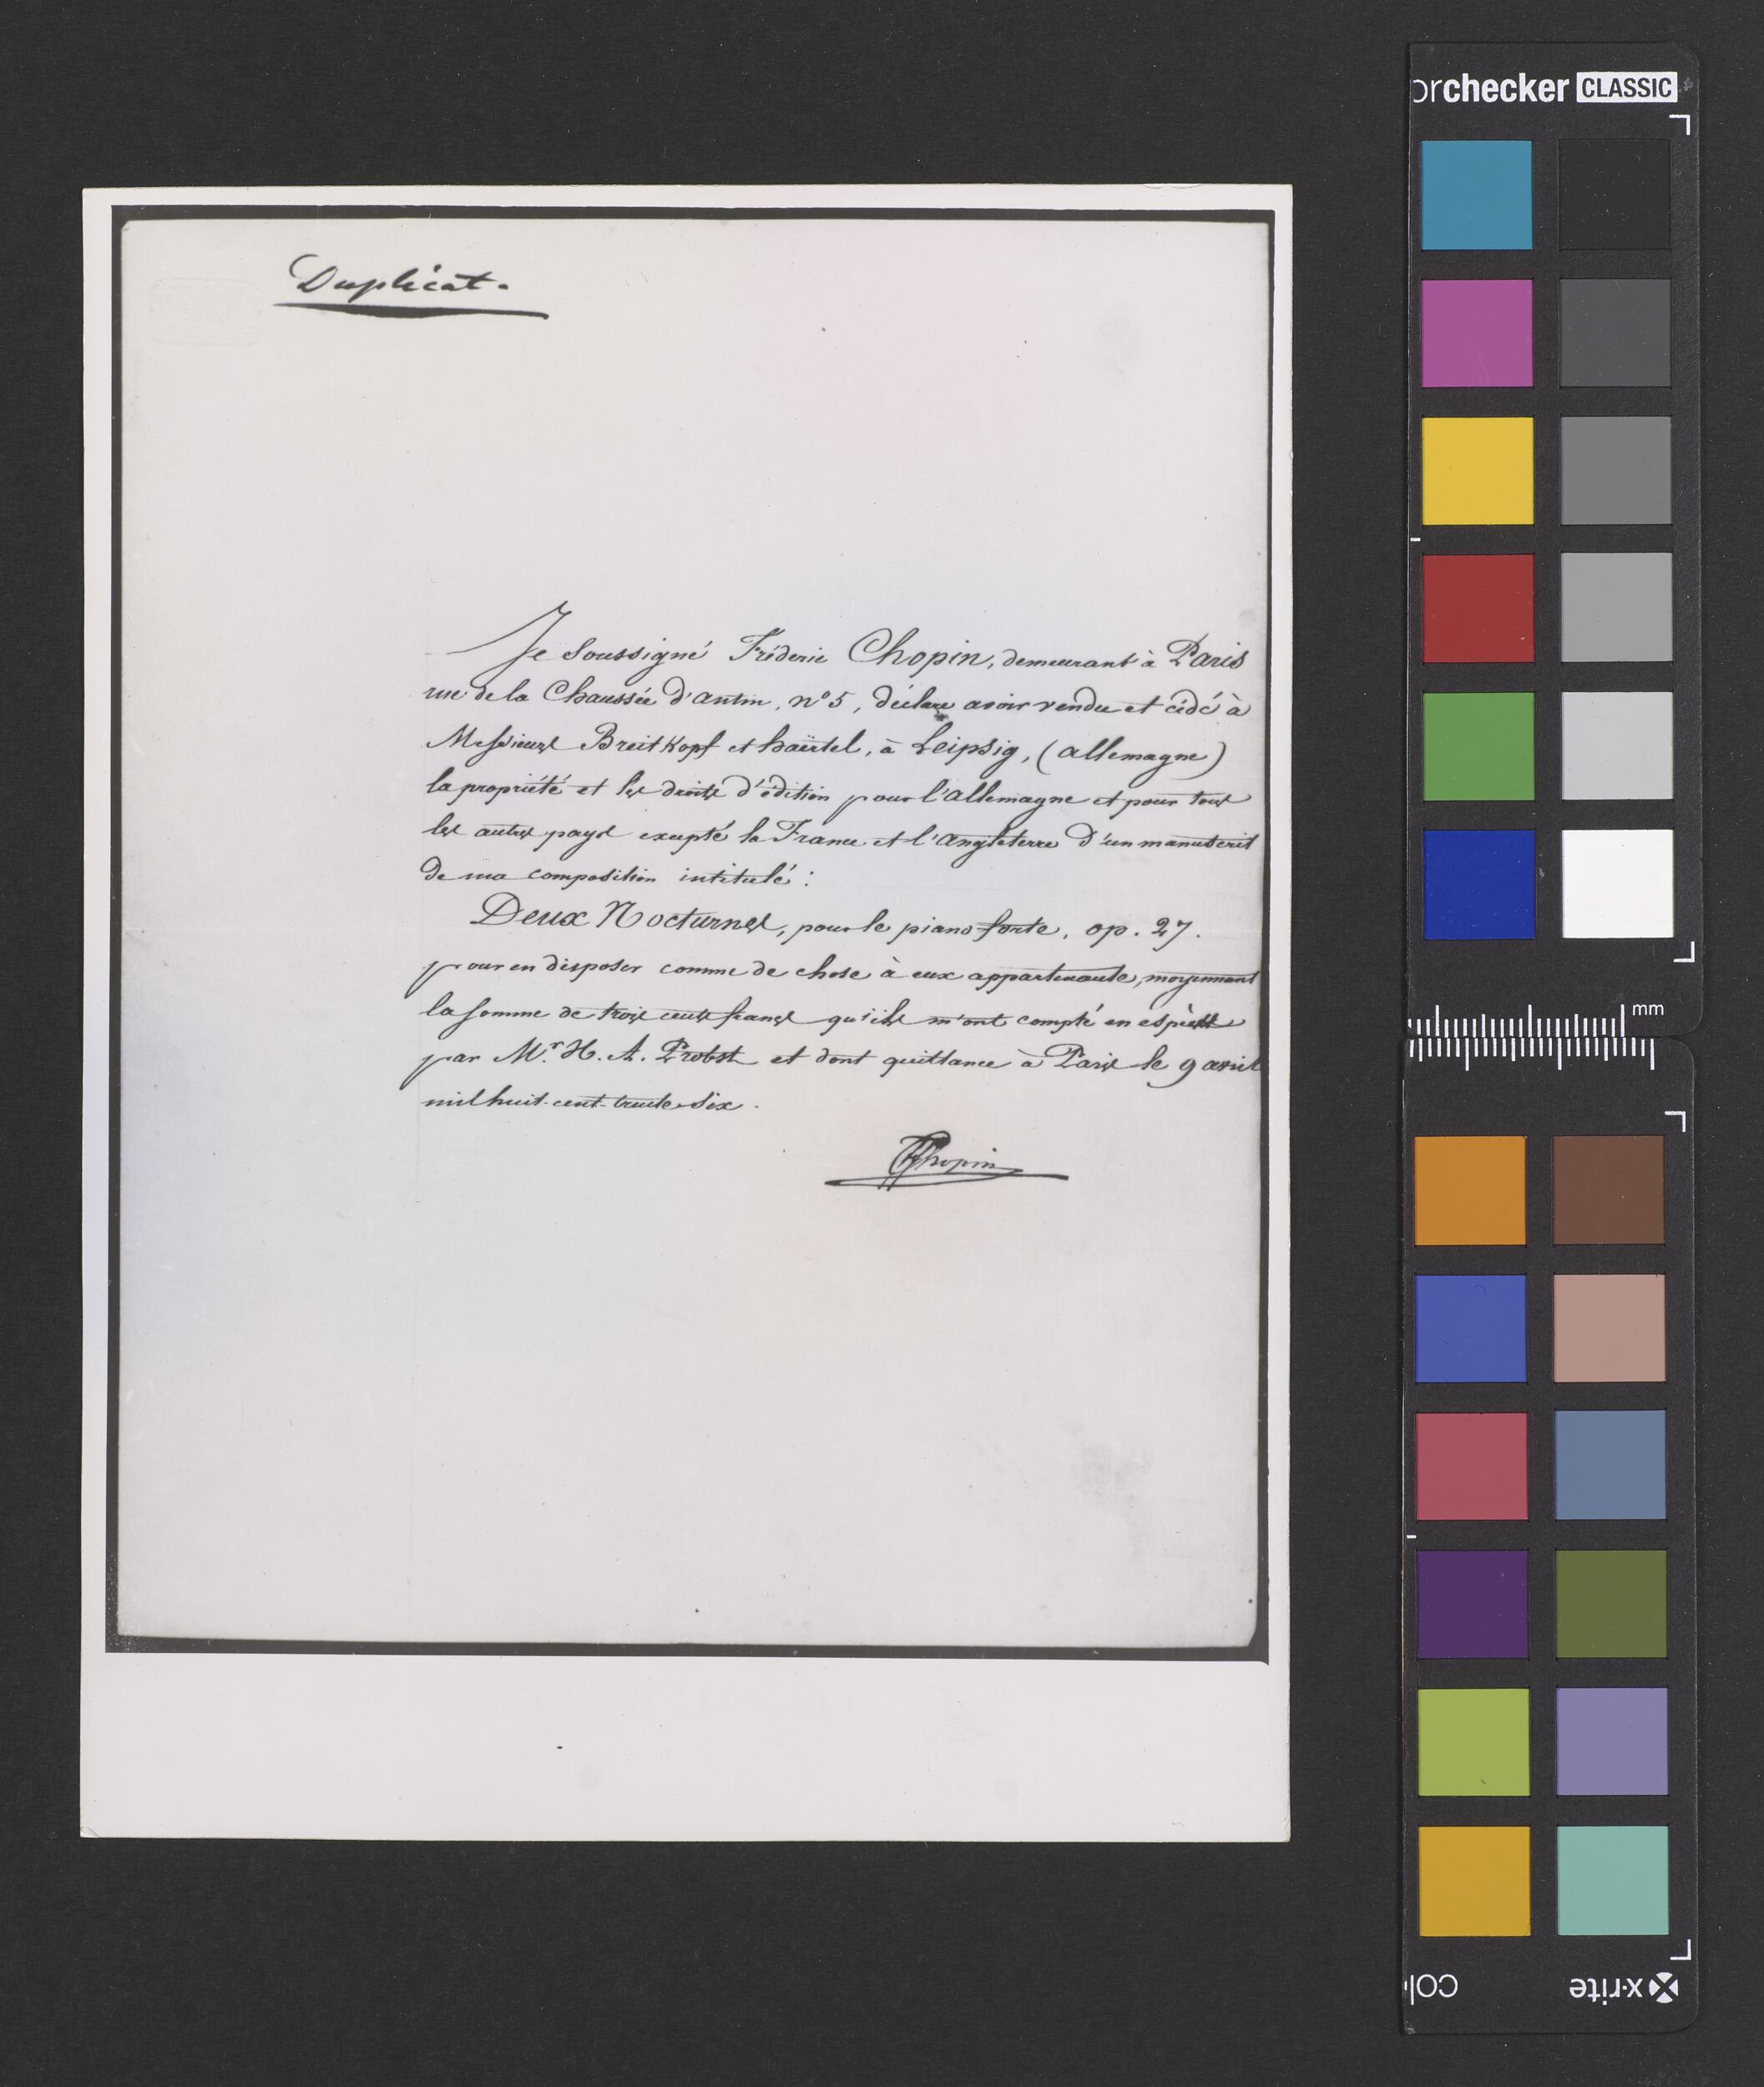 Duplicat.
Je soussigné Fréderic Chopin, demeurant à Paris
rue de la Chaussée d'antin, nº 5, déclare avoir vendu et cédé à
Messieurs Breitkopf et haërtel, à Leipsig, (allemagne)
la propriété et les droits d'édition pour l'allemagne et pour tous
les autres pays excepté la France et l'angleterre d'un manuscrit
de ma composition intitulé :
Deux Nocturnes, pour le piano forte, op. 27.
pour en disposer comme de chose à eux appartenante, moyennant
la somme de trois cents francs qu'ils m'ont compté en espèces
par Mr. H. A. Probst et dont quittance à Paris le 9 avril
mil huit-cent-trente-six.
FChopin
orchecker CLASSIC
mm
x·rite
col